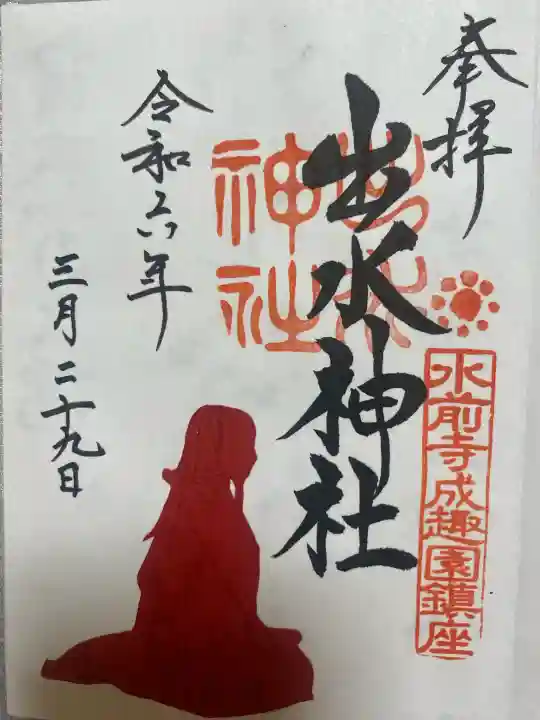 奉拝
水前寺成趣園鎮座
出水神社
出水
神社
令和六年
三月二十九日